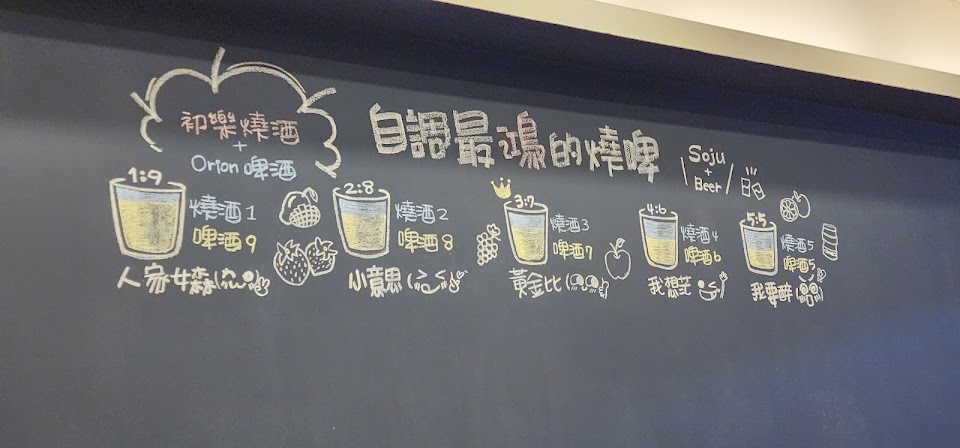 初樂燒酒
+
Orion 啤酒
自調最鴻的燒啤
Soju
+
Beer
1:9
燒酒1
啤酒9
人家女森
2:8
燒酒2
啤酒8
小意思
3:7
燒酒3
啤酒7
黃金比
4:6
燒酒4
啤酒6
我想茫
5:5
燒酒5
啤酒5
我要醉